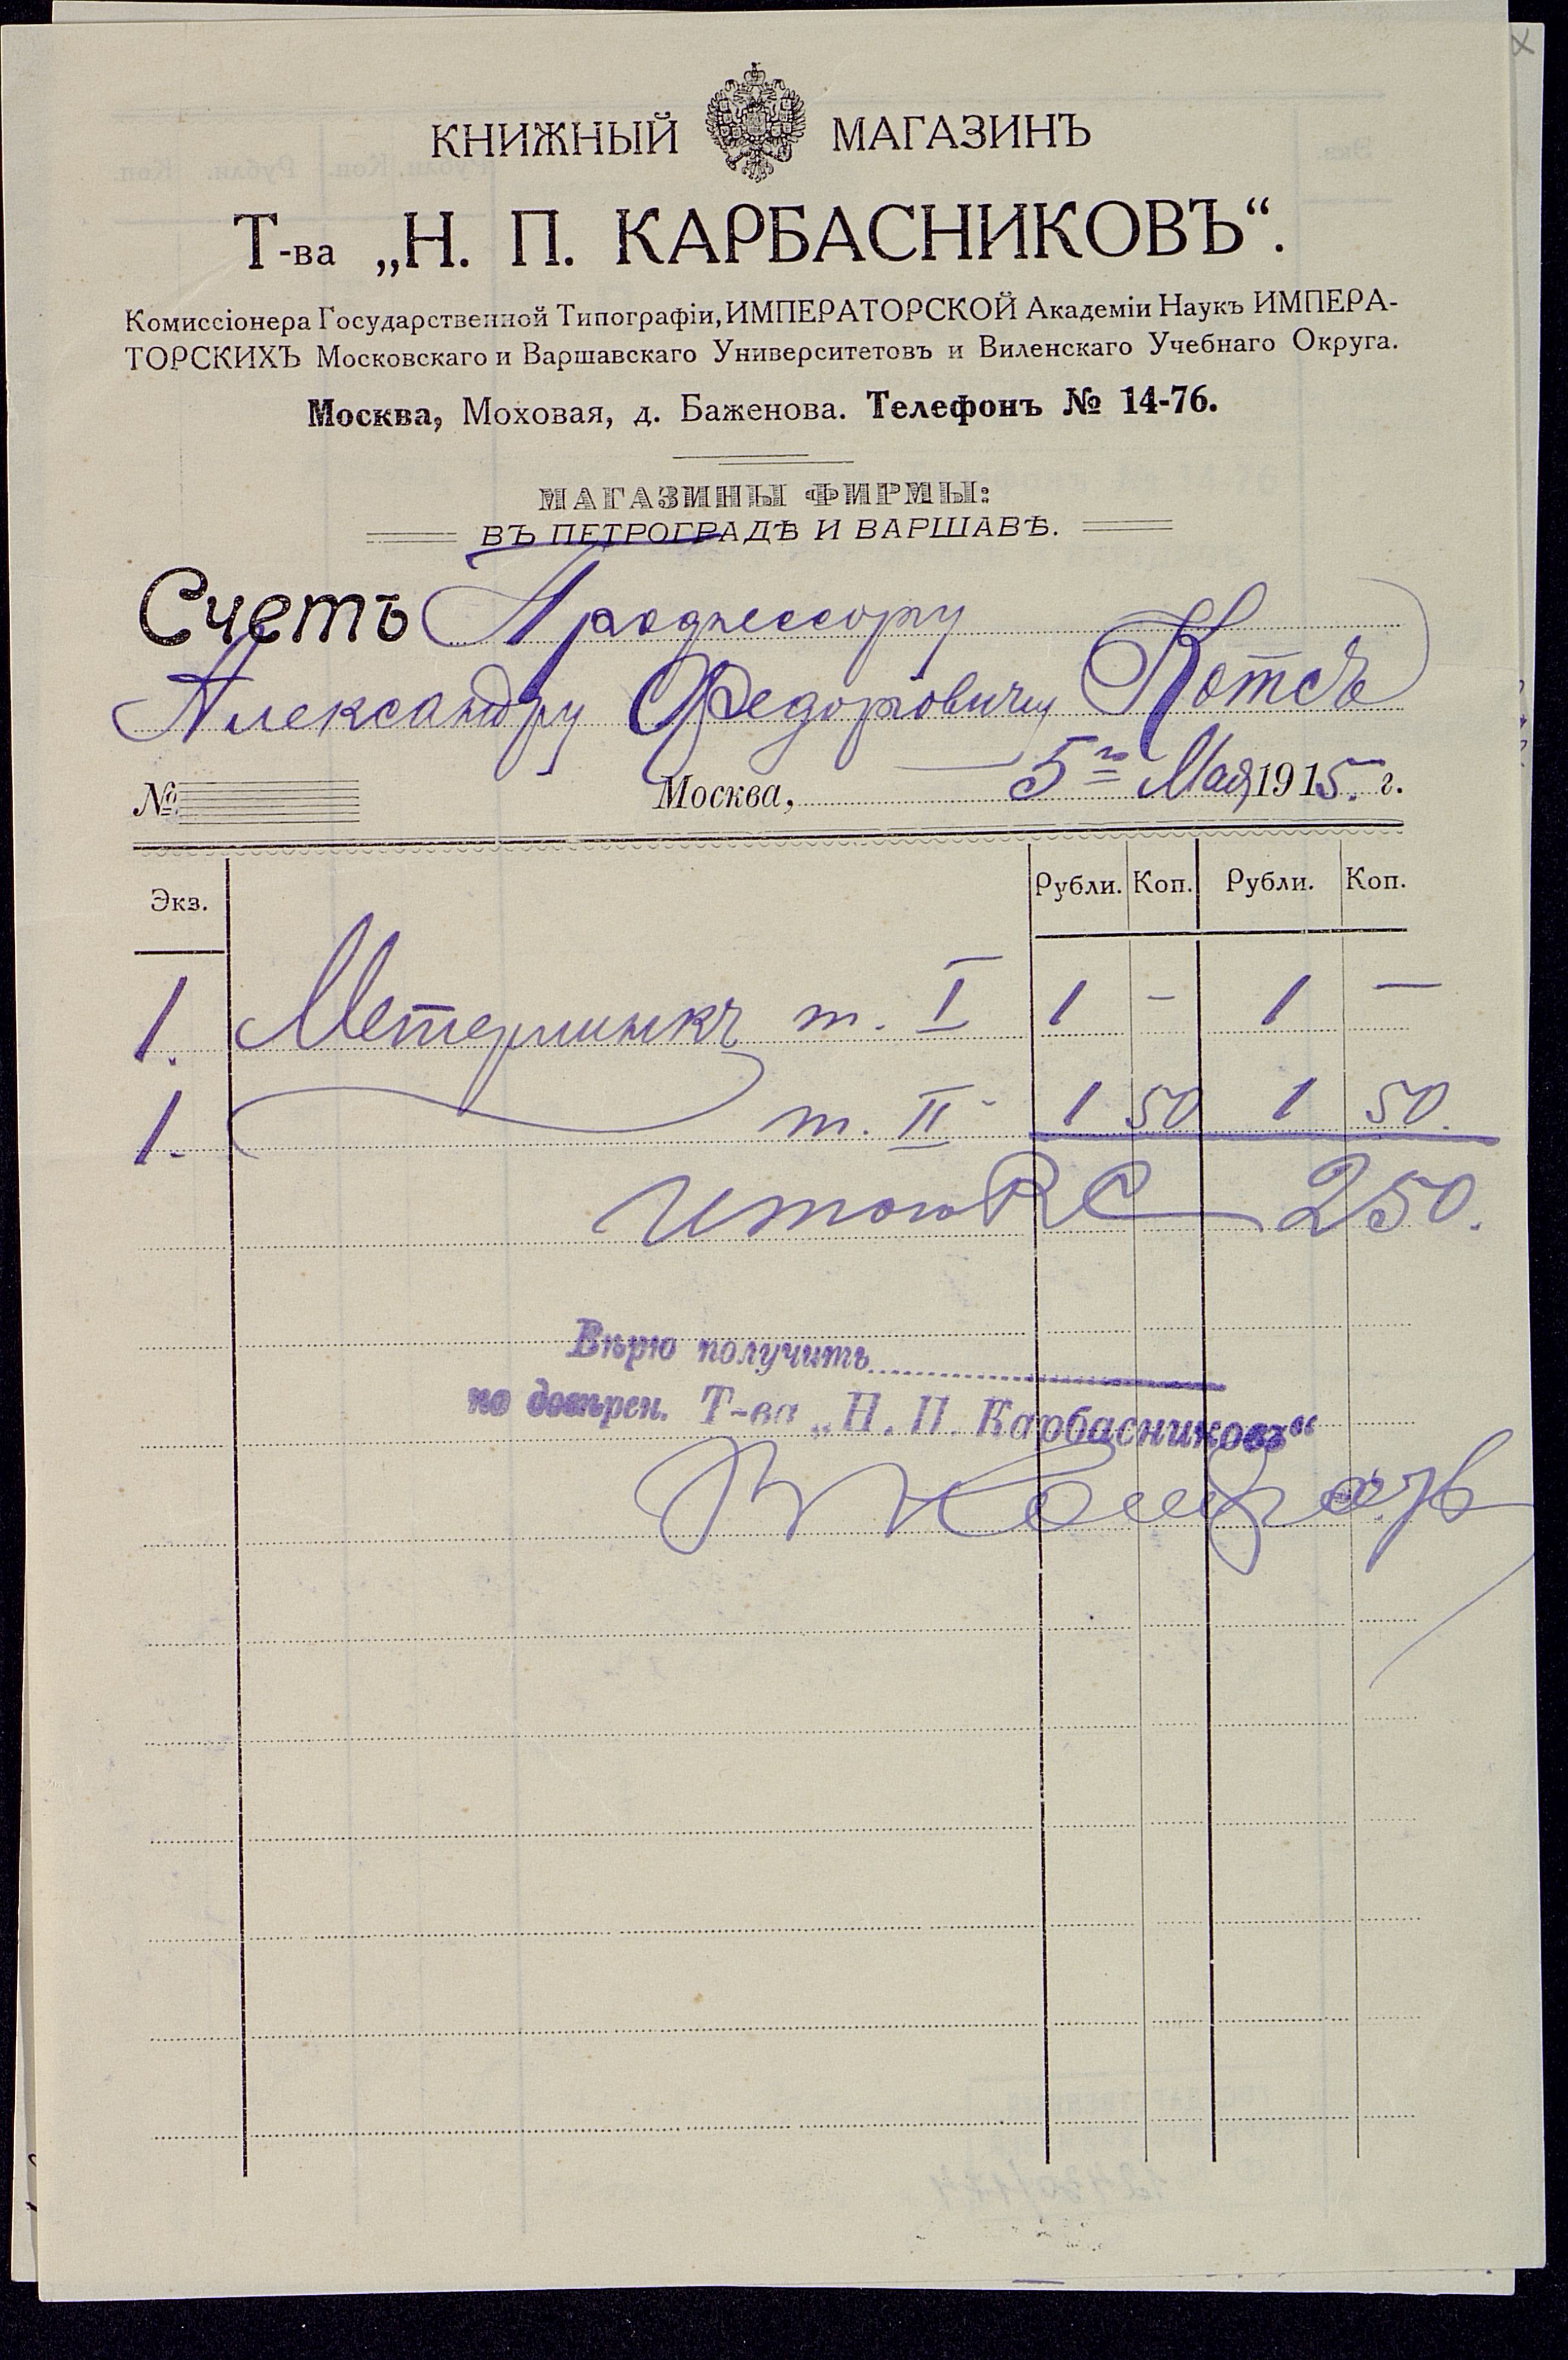 КНИЖНЫЙ МАГАЗИНЪ
Т-ва „Н. П. КАРБАСНИКОВЪ“.
Комиссіонера Государственной Типографіи, ИМПЕРАТОРСКОЙ Академіи Наукъ ИМПЕРА-
ТОРСКИХЪ Московскаго и Варшавскаго Университетовъ и Виленскаго Учебнаго Округа.
Москва, Моховая, д. Баженова. Телефонъ № 14-76.
МАГАЗИНЫ ФИРМЫ:
ВЪ ПЕТРОГРАДѢ И ВАРШАВѢ.
Счетъ Профессору
Александру Федоровичу Котсъ
№ Москва, 5го Мая 1915 г.
Экз. Рубли. Коп. Рубли. Коп.
1. Метерлинкъ т. I 1 – 1 –
1. т. II 1 50 1 50.
Итого RC 250.
Вѣрю получить
по довѣрен. Т-ва „Н. П. Карбасниковъ“